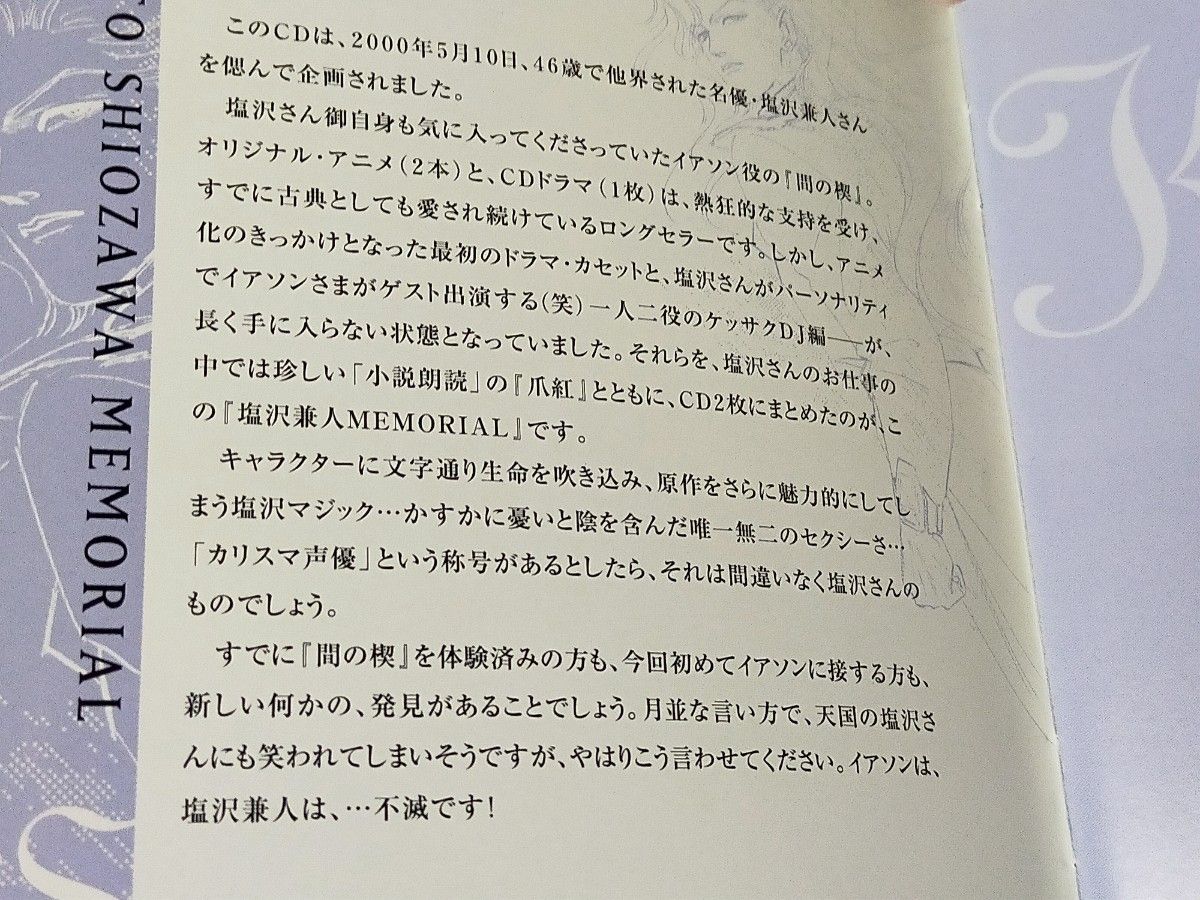 TO SHIOZAWA MEMORIAL
このCDは、2000年5月10日、46歳で他界された名優・塩沢兼人さん
を偲んで企画されました。
塩沢さん御自身も気に入ってくださっていたイアソン役の『間の楔』。
オリジナル・アニメ(2本)と、CDドラマ(1枚)は、熱狂的な支持を受け、
すでに古典としても愛され続けているロングセラーです。しかし、アニメ
化のきっかけとなった最初のドラマ・カセットと、塩沢さんがパーソナリティ
でイアソンさまがゲスト出演する(笑)一人二役のケッサクDJ編──が、
長く手に入らない状態となっていました。それらを、塩沢さんのお仕事の
中では珍しい「小説朗読」の『爪紅』とともに、CD2枚にまとめたのが、こ
の『塩沢兼人MEMORIAL』です。
キャラクターに文字通り生命を吹き込み、原作をさらに魅力的にしてし
まう塩沢マジック…かすかに憂いと陰を含んだ唯一無二のセクシーさ…
「カリスマ声優」という称号があるとしたら、それは間違いなく塩沢さんの
ものでしょう。
すでに『間の楔』を体験済みの方も、今回初めてイアソンに接する方も、
新しい何かの、発見があることでしょう。月並な言い方で、天国の塩沢さ
んにも笑われてしまいそうですが、やはりこう言わせてください。イアソンは、
塩沢兼人は、…不滅です!